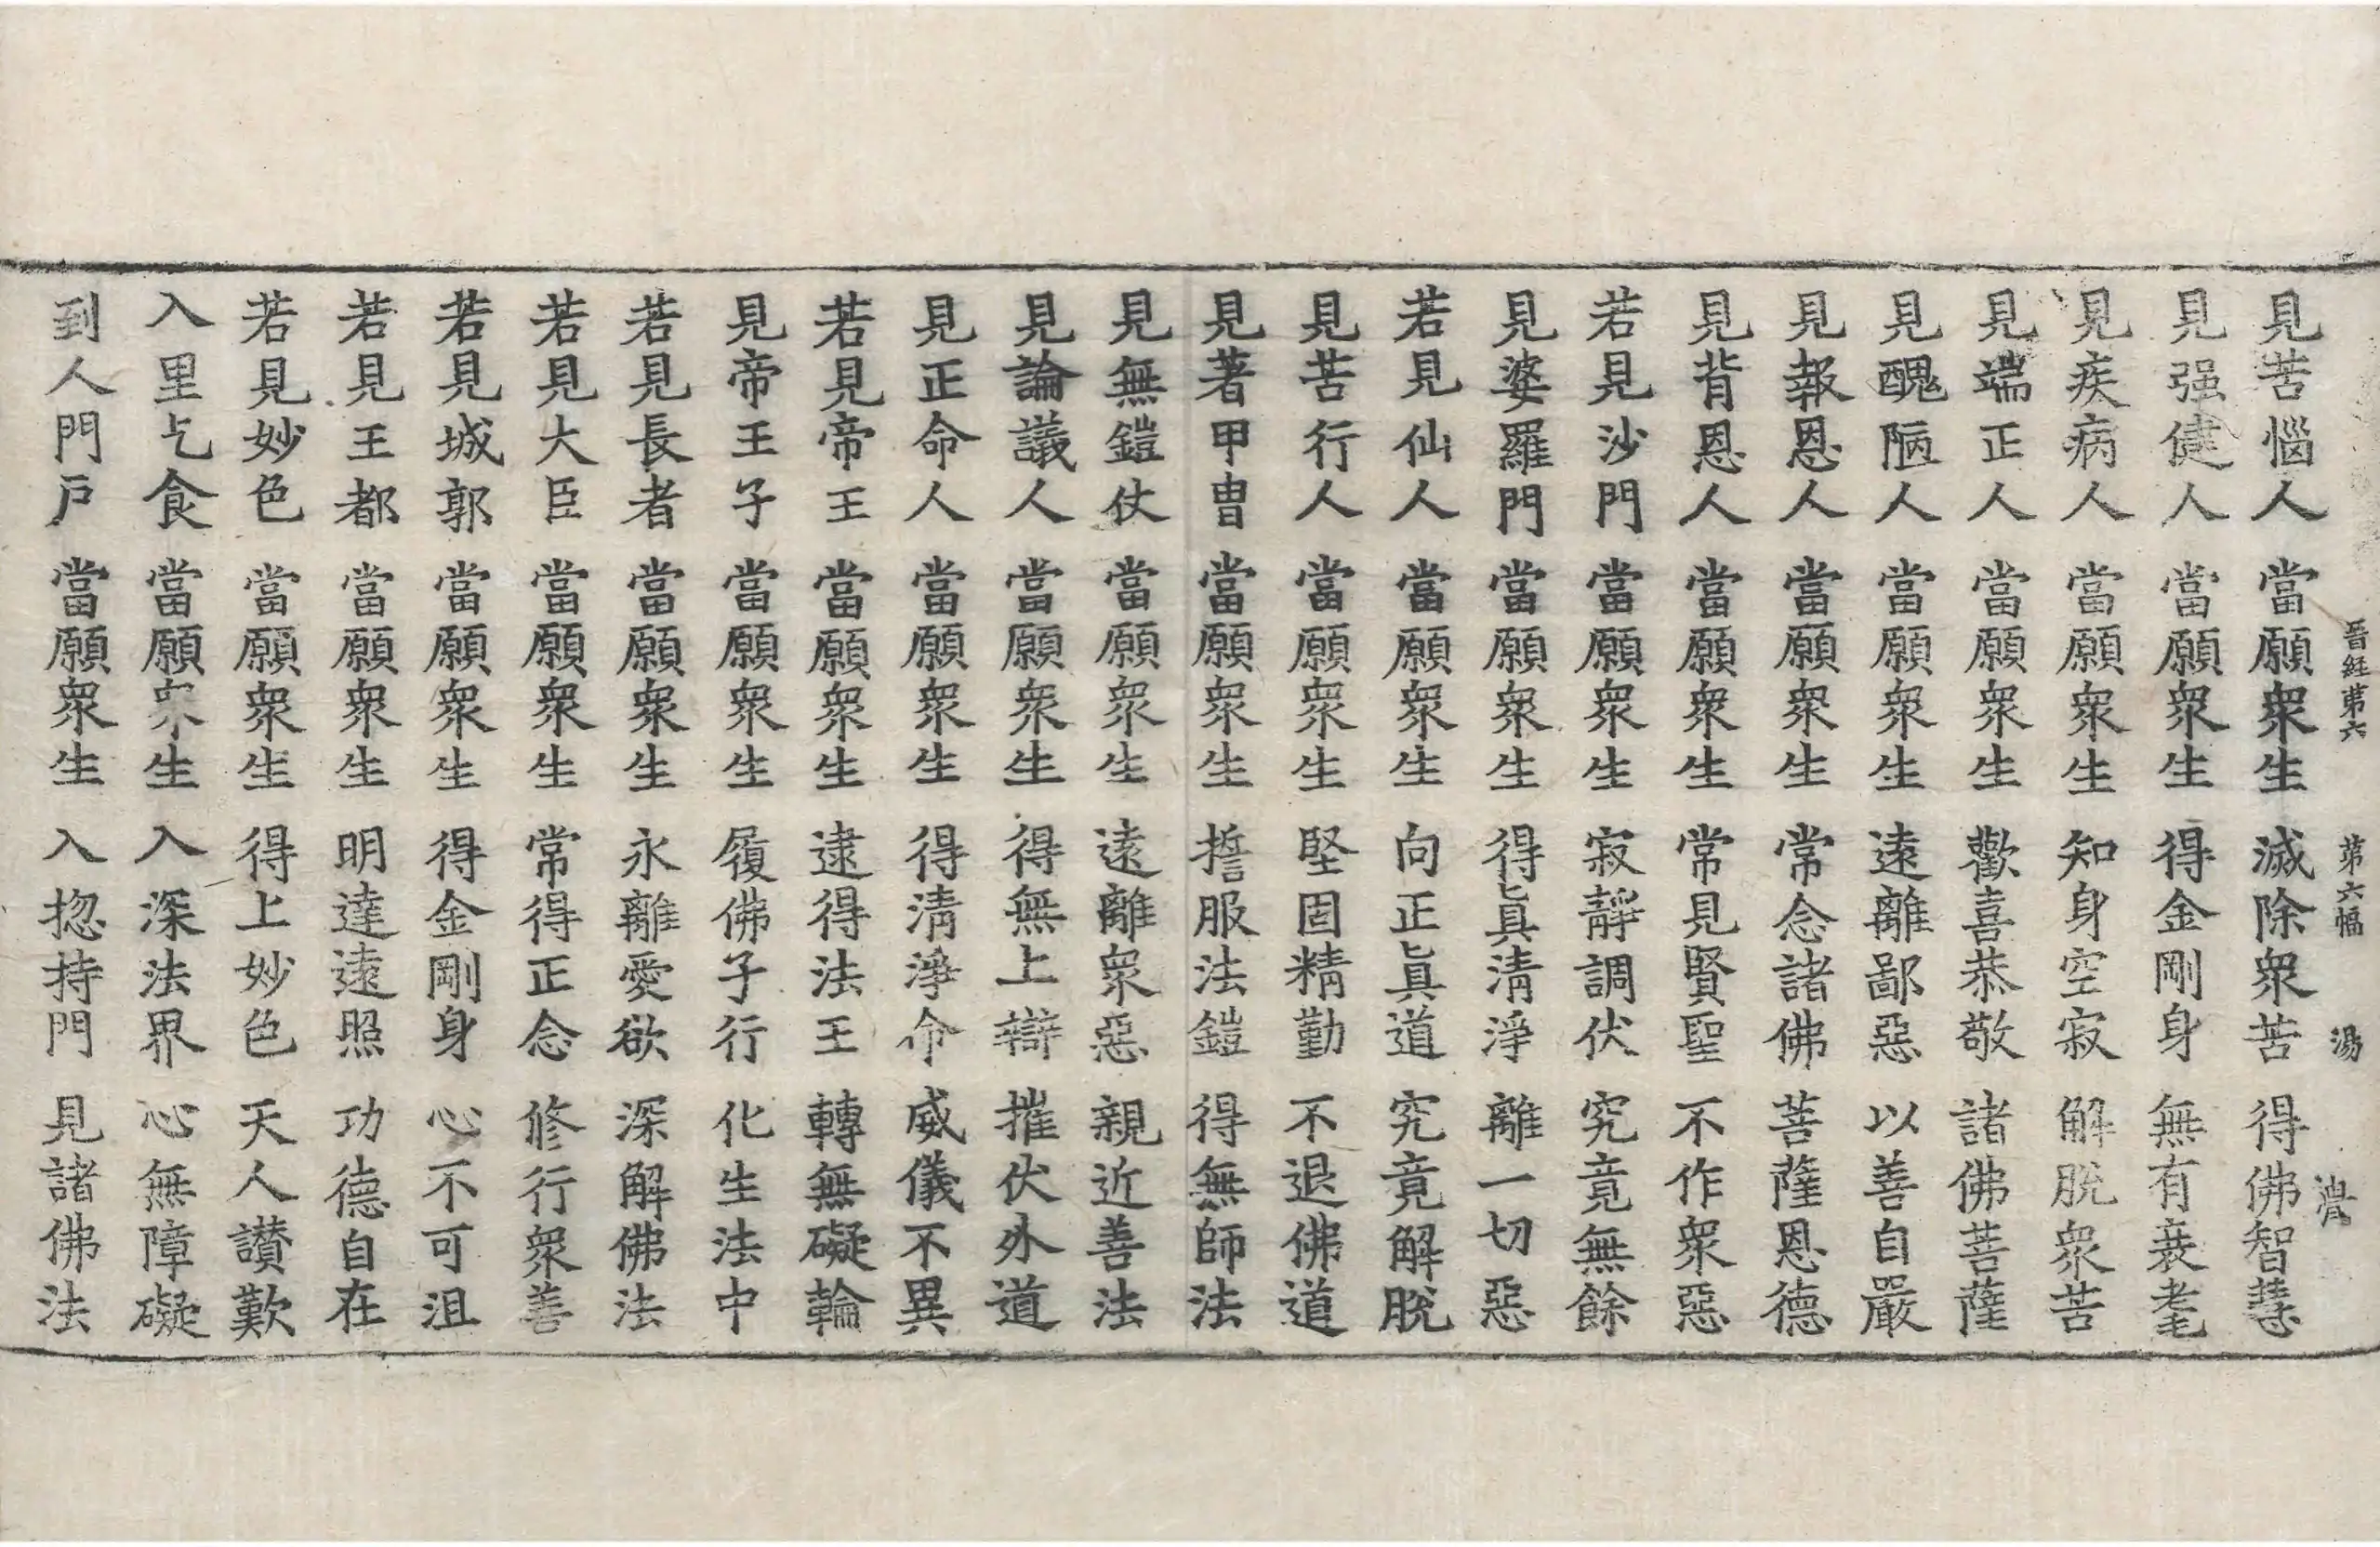 晉經第六 第六幅 湯
見苦惱人 當願衆生 滅除衆苦 得佛智慧
見强健人 當願衆生 得金剛身 無有衰耄
見疾病人 當願衆生 知身空寂 解脫衆苦
見端正人 當願衆生 歡喜恭敬 諸佛菩薩
見醜陋人 當願衆生 遠離鄙惡 以善自嚴
見報恩人 當願衆生 常念諸佛 菩薩恩德
見背恩人 當願衆生 常見賢聖 不作衆惡
若見沙門 當願衆生 寂靜調伏 究竟無餘
見婆羅門 當願衆生 得眞清淨 離一切惡
若見仙人 當願衆生 向正眞道 究竟解脫
見苦行人 當願衆生 堅固精勤 不退佛道
見著甲胄 當願衆生 誓服法鎧 得無師法
見無鎧仗 當願衆生 遠離衆惡 親近善法
見論議人 當願衆生 得無上辯 摧伏外道
見正命人 當願衆生 得清淨命 威儀不異
若見帝王 當願衆生 逮得法王 轉無礙輪
見帝王子 當願衆生 履佛子行 化生法中
若見長者 當願衆生 永離愛欲 深解佛法
若見大臣 當願衆生 常得正念 修行衆善
若見城郭 當願衆生 得金剛身 心不可沮
若見王都 當願衆生 明達遠照 功德自在
若見妙色 當願衆生 得上妙色 天人讃歎
入里乞食 當願衆生 入深法界 心無障礙
到人門戶 當願衆生 入揔持門 見諸佛法